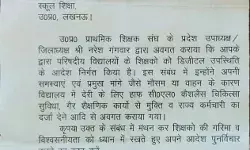 स्कूल शिक्षा,
उ0प्र0, लखनऊ।
उ0प्र0 प्राथमिक शिक्षक संघ के प्रदेश उपाध्यक्ष/
जिलाध्यक्ष श्री नरेश गंगवार द्वारा अवगत कराया कि आपके
द्वारा परिषदीय विद्यालयों के शिक्षकों को डिजीटल उपस्थिति
के आदेश निर्गत किया है। इस संबंध में इन्होंने अपनी
समस्याएं एवं प्रमुख मांगे जैसे मौसम या वाहन के कारण
विद्यालय में देरी के लिए हाफ सी0एल0 कैशलैस चिकित्सा
सुविधा, गैर शैक्षणिक कार्यों से मुक्ति व राज्य कर्मचारी का
दर्जा देने आदि से अवगत कराया गया।
कृपया उक्त के संबंध में मंथन कर शिक्षकों की गरिमा व
विश्वसनीयता को ध्यान में रखते हुए अपने आदेश पुनर्विचार